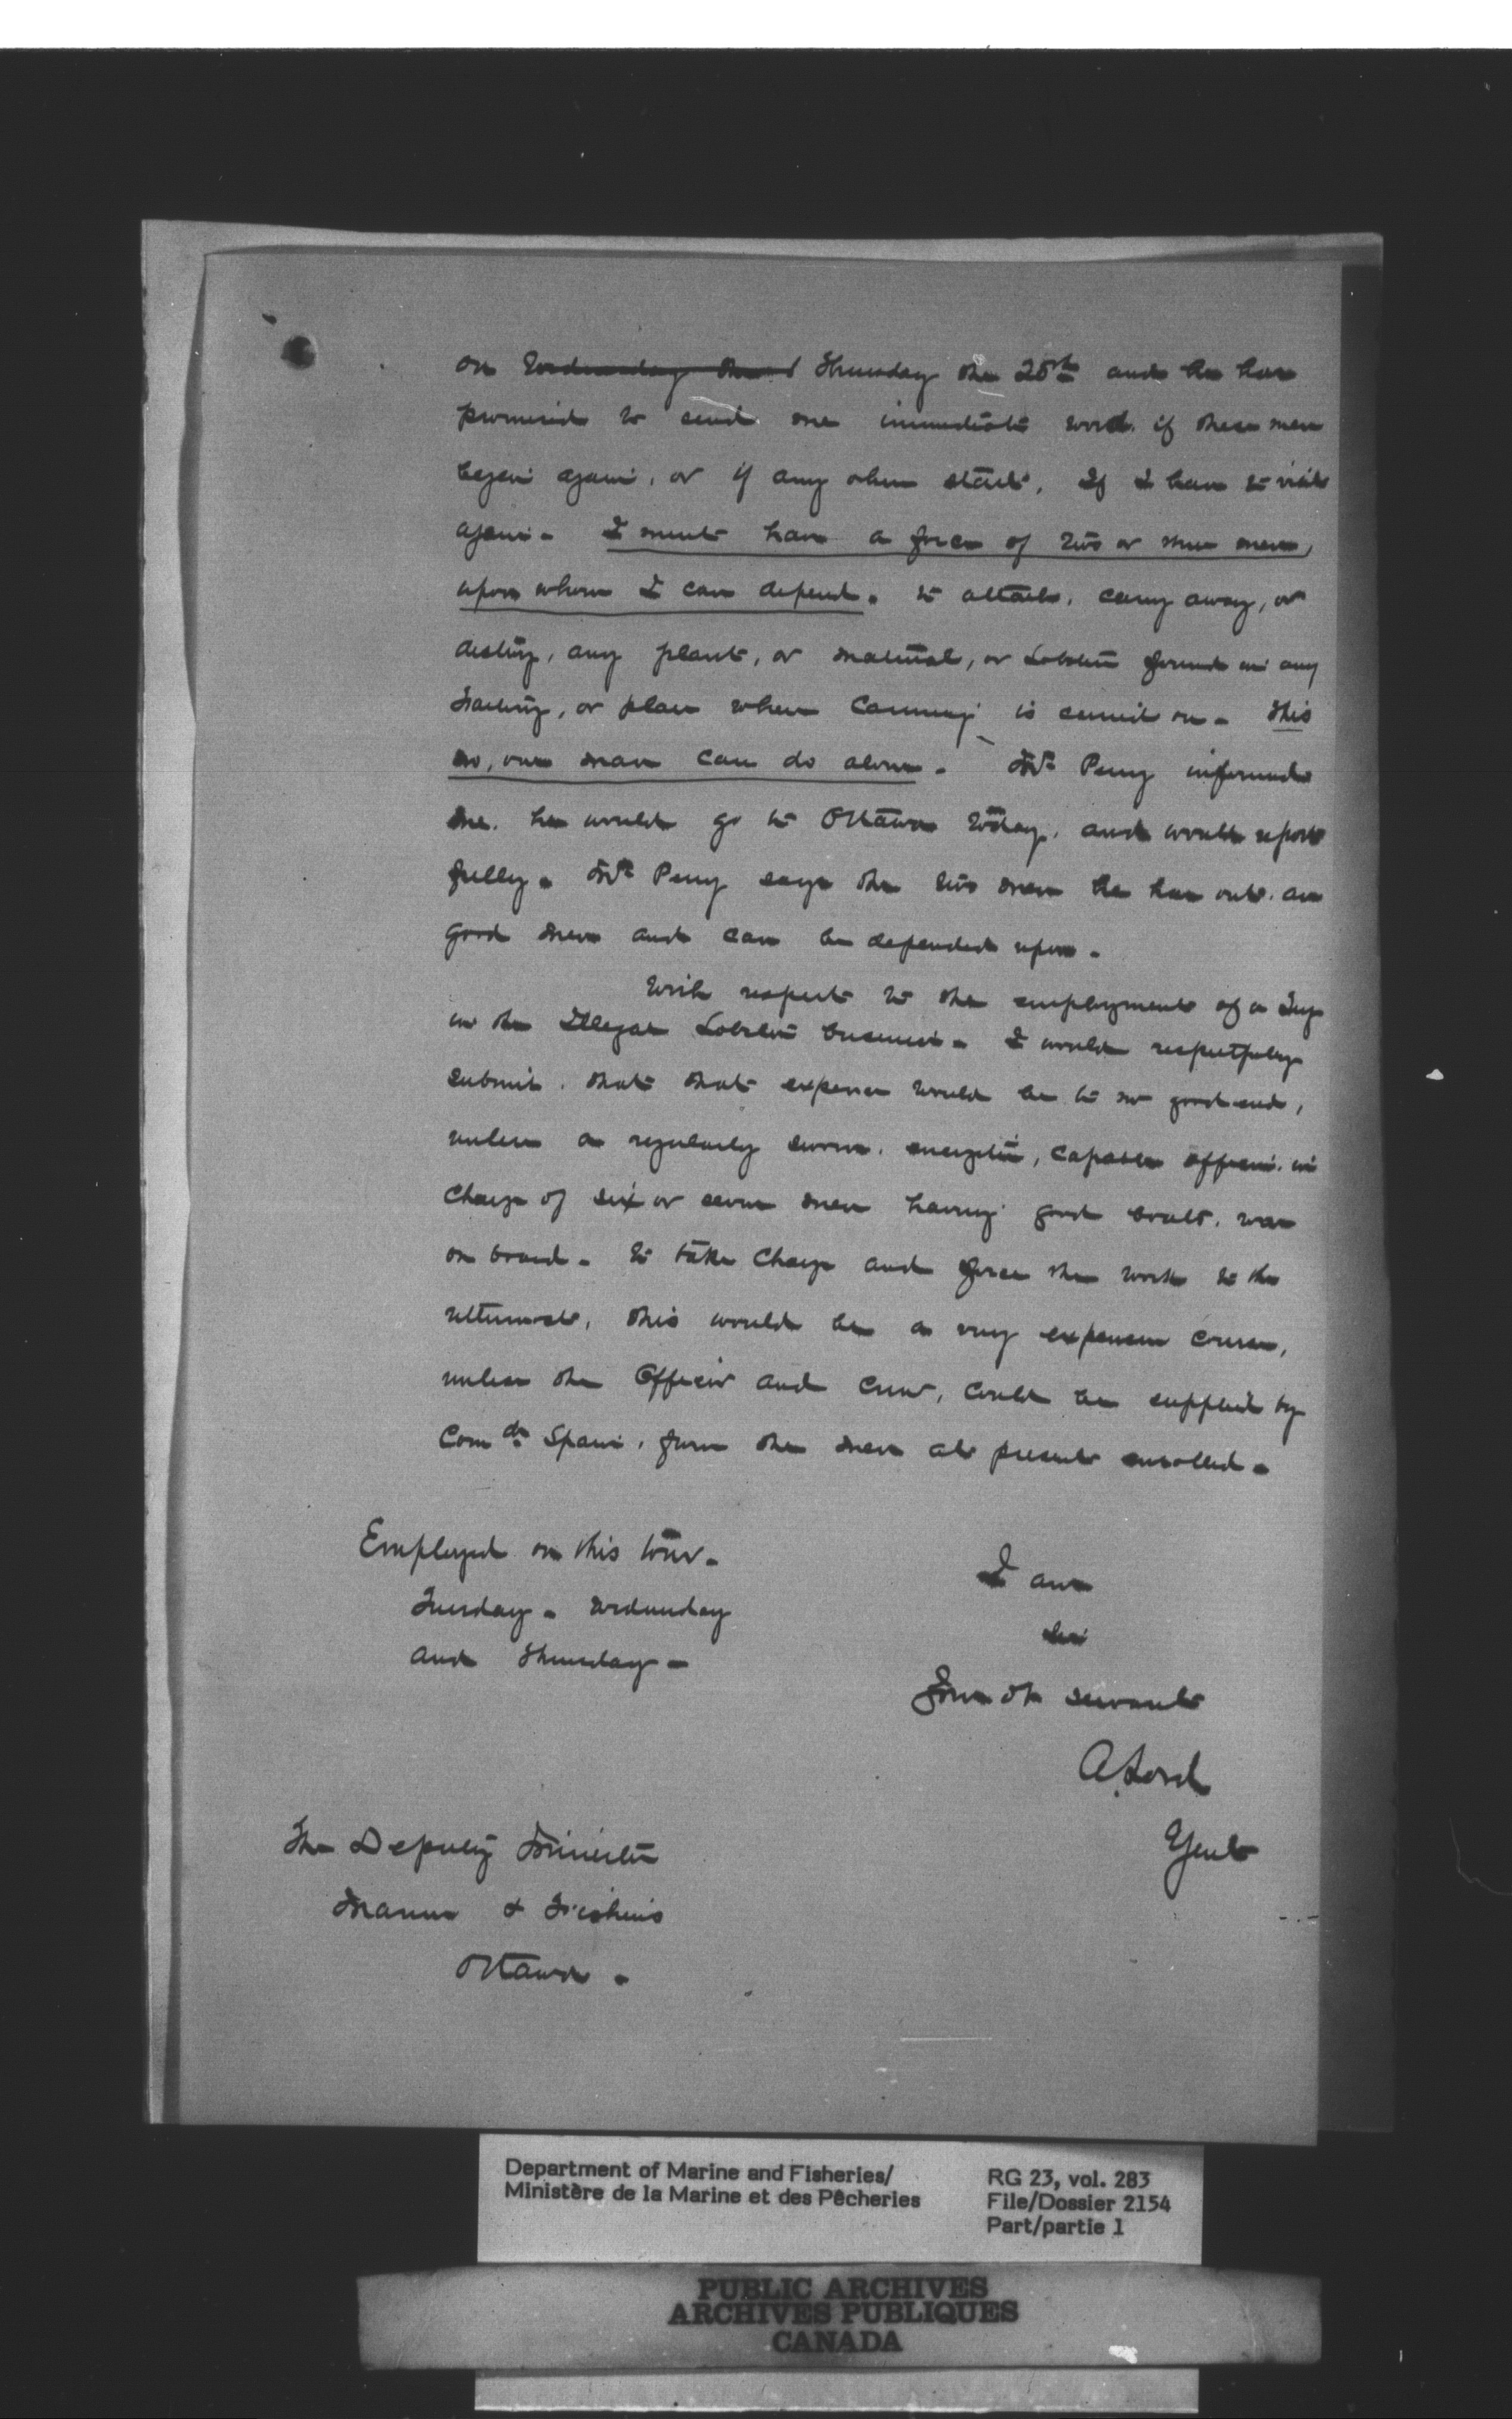 on Wednesday the Thursday the 25th and he has
promised to send me immediate word. if these men
begin again, or if any other start. If I have to visit
again - I must have a force of two or three men,
upon whom I can depend. to attack, carry away, or
destroy, any plant, or material, or Lobsters found in any
Factory, or place where Canning is carried on - This
no, one man can do alone - Mr Perry informed
me. he would go to Ottawa today, and would report
fully - Mr Perry says the two men he has out. are
good men and can be depended upon -
With respect to the employment of a Tug
in the Illegal Lobster business - I would respectfully
submit. that that expense would be to no good end,
unless a regularly sworn. energetic, capable officer. in
Charge of six or seven men having good boats. was
on board - to take Charge and force the work to the
uttermost, this would be a very expensive course,
unless the Officer and Crew, could be supplied by
Comdr Spain, from the men at present enrolled -
Employed on this tour -
Tuesday - Wednesday
and Thursday -
I am
Sir
Your Ob servant
A. Lord
Agent
The Deputy Minister
Marine & Fisheries
Ottawa -
Department of Marine and Fisheries/
Ministère de la Marine et des Pêcheries
RG 23, vol. 283
File/Dossier 2154
Part/partie 1
PUBLIC ARCHIVES
ARCHIVES PUBLIQUES
CANADA